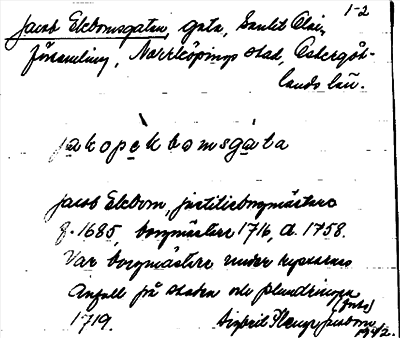 1-2
Jacob Ekbomsgatan, gata, Sankt Olai
församling, Norrköpings stad, Östergöt-
lands län.
jakopèkbomsgáta
Jacob Ekbom, justitieborgmästare
f. 1685, borgmästare 1716, d. 1758.
Var borgmästare under ryssarnas
anfall på staden och plundringen
1719.